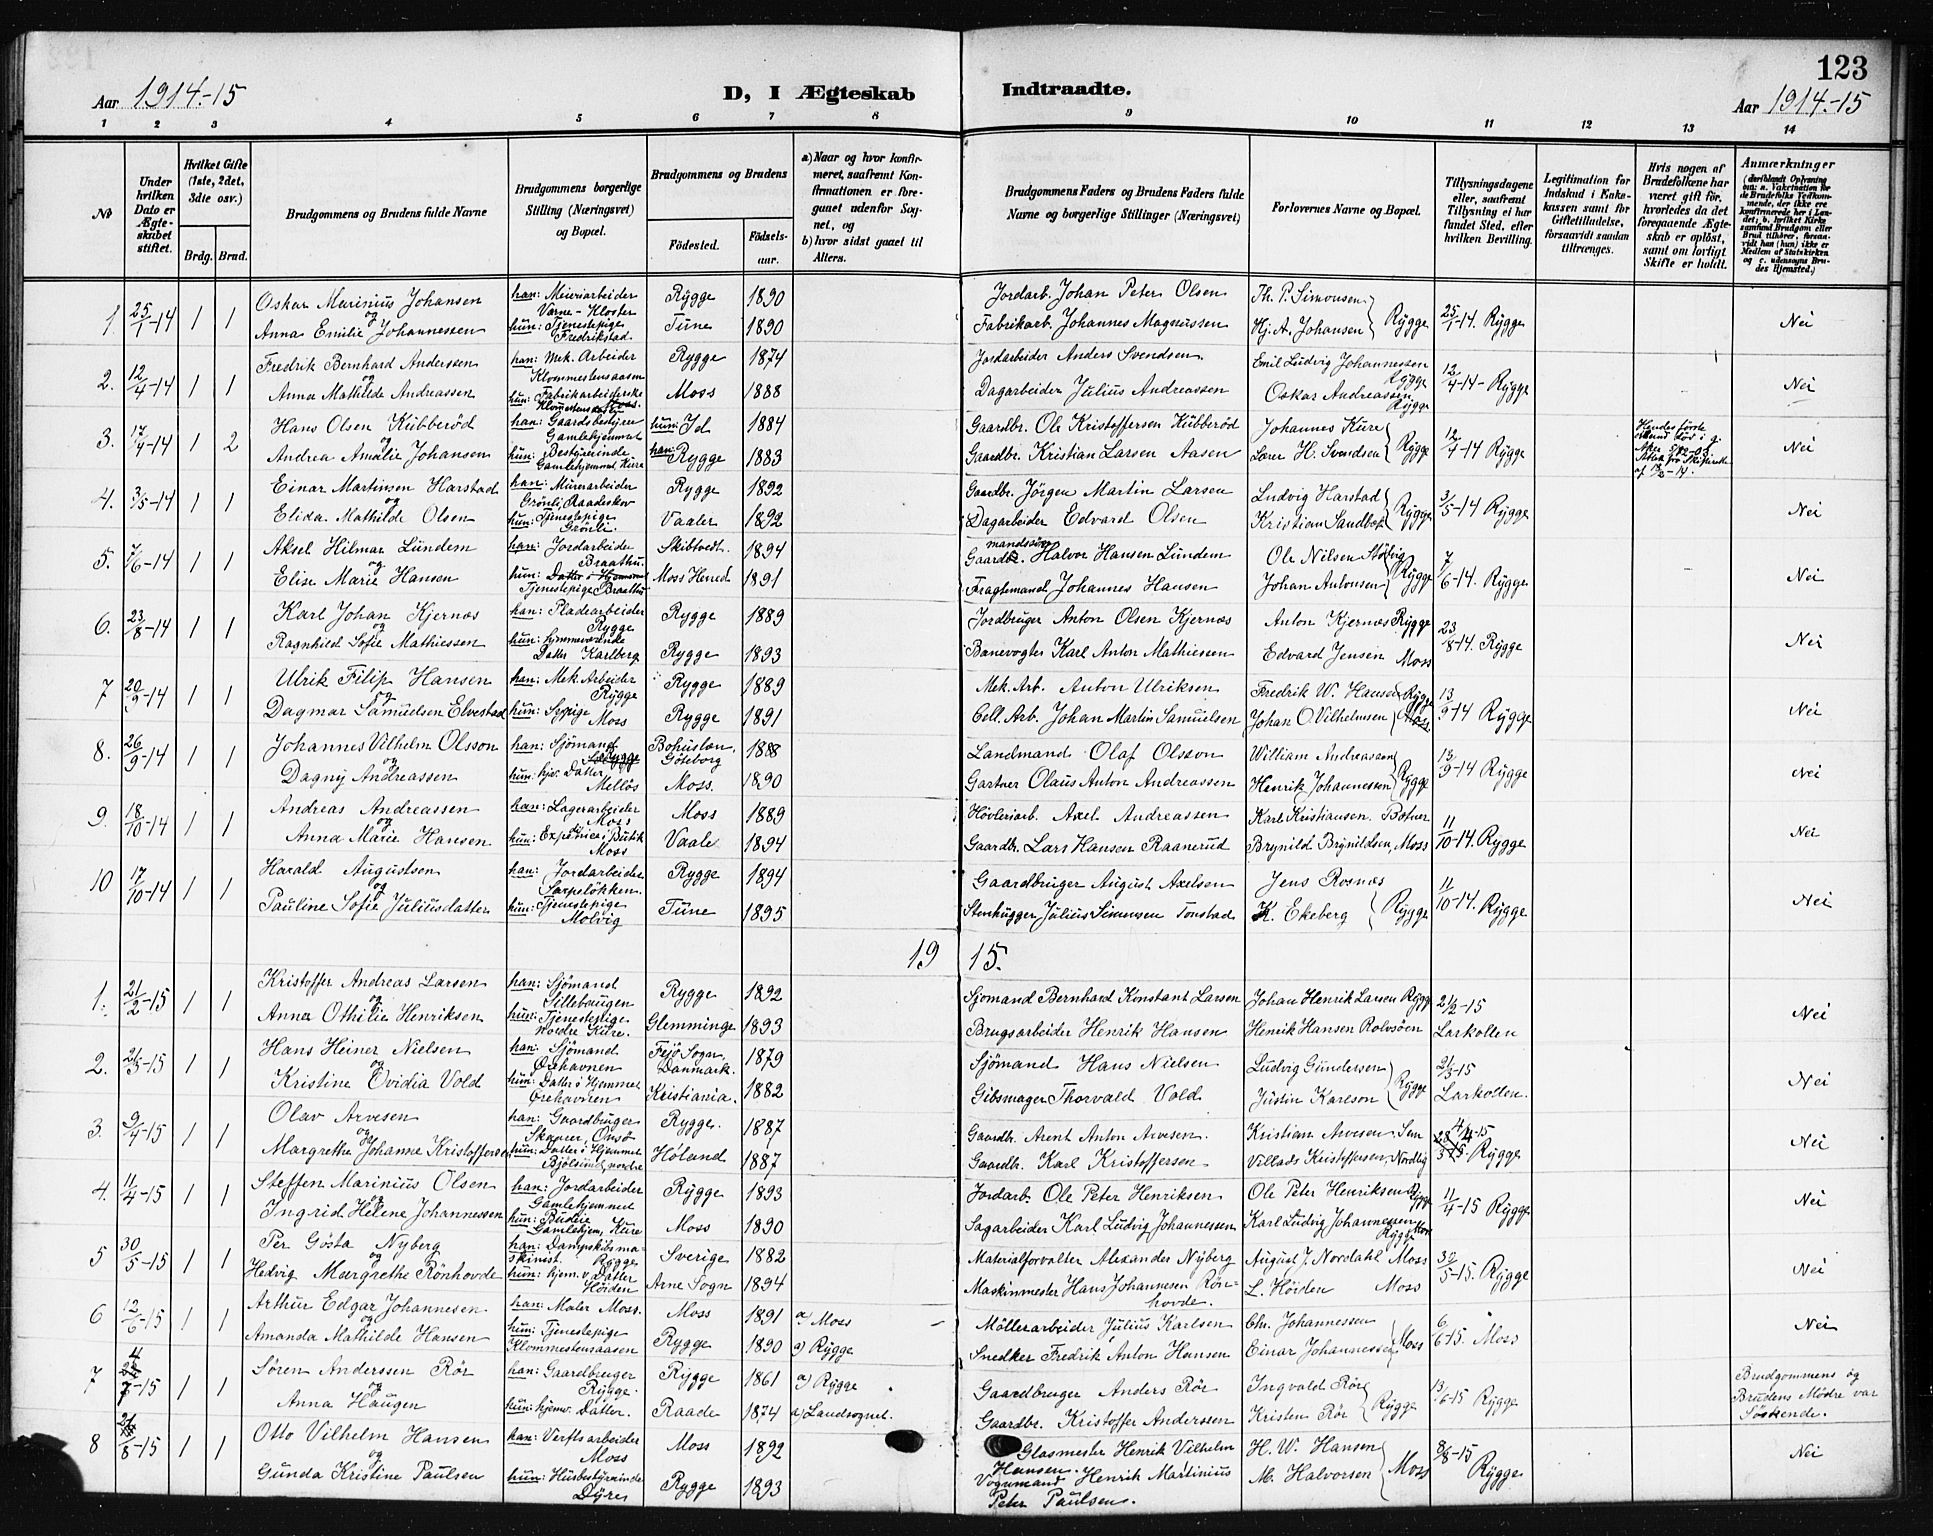 123
Aar 1914.-15
D, I Ægteskab Indtraadte.
Aar 1914.-15
1 2 3 4 5 6 7 8 9 10 11 12 13 14
No
Under hvilken Dato er Ægteskabet stiftet.
Hvilket Gifte (1ste, 2det, 3die osv.)
Brdg. Brud.
Brudgommens og Brudens fulde Navne
Brudgommens borgerlige Stilling (Næringsvei) og Bopæl.
Brudgommens og Brudens
Fødested. Fødselsaar.
a) Naar og hvor konfirmeret, saafremt Konfirmationen er foregaaet udenfor Sognet, og
b) hvor sidst gaaet til Alters.
Brudgommens Faders og Brudens Faders fulde Navne og borgerlige Stillinger (Næringsvei)
Forlovernes Navne og Bopæl.
Tillysningsdagene eller, saafremt Tillysning ei har fundet Sted, efter hvilken Bevilling.
Legitimation for Indskud i Enkekassen samt for Giftetilladelse, forsaavidt saadan tiltrænges.
Hvis nogen af Brudefolkene har været gift før, hvorledes da det foregaaende Ægteskab er opløst, samt om lovligt Skifte er holdt.
Anmærkninger (deriblandt Oplysning om: a. Vaksination for de Brudefolks Vedkommende, der ikke ere konfirmerede her i Landet; b. hvilket Kirkesamfund Brudgom eller Brud tilhører, forsaavidt han (hun) ikke er Medlem af Statskirken og c. udensogns Brudes Hjemsted.)
1. 25/1-14 1 1 Oskar Marinius Johansen han: Meieriarbeider Varne-Kloster Rygge 1890 Jordarb. Johan Peter Olsen Th. P. Simonsen 25/1-14. Rygge Nei
og Anna Emilie Johannessen hun: Tjenestepige Fredrikstad. Tune 1890 Fabrikarb. Johannes Magnussen Hj. A. Johansen Rygge
2. 12/4-14 1 1 Fredrik Bernhard Anderssen han: Mek. Arbeider Klommestensaasen Rygge 1874 Jordarbeider Anders Svendsen. Emil Ludvig Johannessen Rygge 12/4-14- Rygge Nei
og Anna Mathilde Andreassen hun: Fabrikarbeiderske Moss 1888 Dagarbeider Julius Andreassen Oskar Andreassen Rygge
3. 17/4-14 1 2 Hans Olsen Kubberød han: Gaardsbestyrer Gamlehjemmet hun: Id 1884 Gaardbr. Ole Kristoffersen Kubberød Johannes Kure 12/4-14 Rygge Hendes første Nei
og Andrea Amalie Johansen hun: Bestyrerinde Gamlehjemmet, Kure han: Rygge 1883 Gaardbr. Kristian Larsen Aasen Lærer H. Svendsen Rygge
4. 3/5-14 1 1 Einar Martinsen Harstad han: Murerarbeider Grønli, Raadeskov Rygge 1892 Gaardbr. Jørgen Martin Larsen Ludvig Harstad 3/5-14 Rygge Nei
og Elida Mathilde Olsen hun: Tjenestepige Grønli. Vaaler 1892 Dagarbeider Edvard Olsen Kristian Sandbæk Rygge
5. 7/6-14 1 1 Aksel Hilmar Lundem han: Jordarbeider Braathu. Skibtvedt. 1894 Gaardmandssøn Halvor Hansen Lundem Ole Nilsen Støtvig 7/6-14. Rygge Nei
og Elise Marie Hansen hun: Datter i Hjemmet Tjenestepige Braathu Moss Herred 1891 Fragtemand Johannes Hansen Johan Antonsen Rygge
6. 23/8-14 1 1 Karl Johan Kjernæs han: Pladearbeider Rygge Rygge 1889 Jordbruger Anton Olsen Kjernæs Anton Kjernæs Rygge 23/8-14. Rygge Nei
og Ragnhild Sofie Mathiessen hun: hjemmeværende Datter Karlberg Rygge 1893 Banevogter Karl Anton Mathiessen Edvard Jensen Moss
7 20/9-14 1 1 Ulrik Filip Hansen han: Mek. Arbeider Rygge Rygge 1889 Mek. Arb. Anton Ulriksen Fredrik W. Hansen Rygge 13/9-14 Rygge Nei
og Dagmar Samuelsen Elvestad hun: Sypige Moss Rygge 1891 Cell. Arb. Johan Martin Samuelsen Johan O. Vilhelmsen Moss.
8. 26/9-14 1 1 Johannes Vilhelm Olsson han: Sjømand Bohuslæn, Göteborg 1888 Landmand Olaf Olsson William Andreassen 13/9-14 Rygge Nei
og Dagny Andreassen hun: hjv. Datter Melløs Moss. 1890 Gartner Olaus Anton Andreassen Henrik Johannessen Rygge
9. 18/10-14 1 1 Andreas Andreassen han: Lagerarbeider Moss Moss 1889 Høvleriarb. Axel Andreassen Karl Kristiansen Botner 11/10-14. Rygge Nei
og Anna Marie Hansen hun: Expeditrice i Butik Moss Vaale 1894 Gaardbr. Lars Hansen Raanerud Brynild Brynildsen, Moss
10 17/10-14 1 1 Harald Augustsen han: Jordarbeider Sarpeløkken Rygge 1894 Gaardbruger August Axelsen Jens Rosnæs 11/10-14. Rygge Nei
og Pauline Sofie Juliusdatter hun: Tjenestepige Molvig Tune 1895 Stenhugger Julius Simensen Tonstad K. Ekeberg Rygge
19 15.
1. 21/2-15 1 1 Kristoffer Andreas Larsen han: Sjømand Sillebaugen Rygge 1892 Sjømand Bernhard Konstant Larsen Johan Henrik Larsen Rygge 21/2-15 Nei
og Anna Othilie Henriksen hun: Tjenestepige Nordre Kure. Glemminge 1893 Brugsarbeider Henrik Hansen Henrik Hansen Rolvsøen Larkollen
2. 21/3-15 1 1 Hans Heiner Nielsen han: Sjømand Ørehavnen Fejø Sogn Danmark. 1879 Sjømand Hans Nielsen Ludvig Gundersen 21/3-15 Nei
og Kristine Ovidia Vold hun: Datter i Hjemmet Ørehavnen Kristiania. 1882 Gibsmager Thorvald Vold Justin Karlson Rygge Larkollen.
3. 9/4-15 1 1 Olav Arvesen han: Gaardbruger Skaarer, Onsø Rygge. 1887 Gaardb. Arent Anton Arvesen. Kristian Arvesen Sen 4/4-15 Rygge Nei
og Margrethe Johanne Kristoffersen hun: Datter i Hjemmet Bjølsund nordre Høland 1887 Gaardb. Karl Kristoffersen Villads Kristoffersen Nordlig
4. 11/4-15 1 1 Steffen Marinius Olsen han: Jordarbeider Gamlehjemmet Rygge 1893 Jordarb. Ole Peter Henriksen Ole Peter Henriksen Rygge 11/4-15 Rygge Nei
og Ingrid Helene Johannessen hun: Budeie Gamlehjem, Kure Moss 1890 Sagarbeider Karl Ludvig Johannessen Karl Ludvig Johannessen
5 30/5-15 1 1 Per Gösta Nyberg han: Dampskibsmaskinist. Rygge Sverige 1882 Materialforvalter Alexander Nyberg August J. Nordahl Moss 30/5-15. Rygge Nei
og Hedvig Margrethe Rønhovde hun: hjem. v. Datter Høiden Arne Sogn 1894 Maskinmester Hans Johannesen Rønhovde. L. Høiden Moss
6 12/6-15 1 1 Arthur Edgar Johannesen han: Maler Moss. Moss 1891 a) Moss Møllerarbeider Julius Karlsen Chr. Johannessen 6/6-15. Moss Nei
og Amanda Mathilde Hansen hun: Tjenestepige Klommestensaasen Rygge 1890 a) Rygge Snedker Fredrik Anton Hansen Einar Johannessen Moss
7 4/7-15 1 1 Søren Anderssen Rør han: Gaardbruger Rygge. Rygge 1861 a) Rygge Gaardbruger Anders Rør Ingvald Rør 13/6-15 Rygge Brudgommens og Brudens Mødre var Søskende.
og Anna Haugen hun: hjemv. Datter. Raade 1874 a) Landsognet. Gaardbr. Kristoffer Anderssen Kristen Rør Rygge
8 21/8-15 1 1 Otto Vilhelm Hansen han: Verftsarbeider Moss Moss 1892 Glasmester Henrik Vilhelm Hansen. H. W. Hansen 8/8-15 Rygge Nei
og Gunda Kristine Paulsen hun: Husbestyrerinde Dyre Rygge 1893 Vognmand Henrik Martinius Peter Paulsen. M. Halvorsen Moss